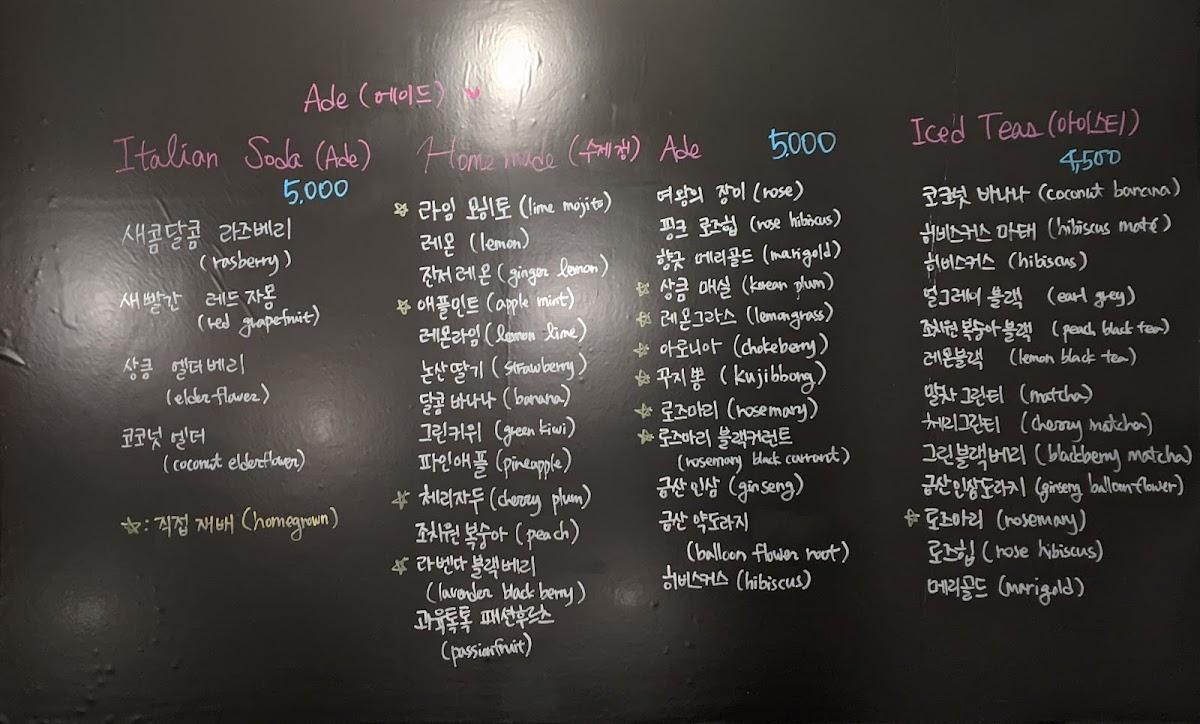 Ade (에이드)
Italian Soda (Ade)
5,000
새콤달콤 라즈베리
(rasberry)
새빨간 레드자몽
(red grapefruit)
상큼 엘더베리
(elderflower)
코코넛 엘더
(coconut elderflower)
☆: 직접 재배 (homegrown)
Home made (수제청) Ade 5,000
☆ 라임 모히토 (lime mojito)
레몬 (lemon)
진저레몬 (ginger lemon)
☆ 애플민트 (apple mint)
레몬라임 (lemon lime)
논산딸기 (strawberry)
달콤바나나 (banana)
그린키위 (green kiwi)
파인애플 (pineapple)
☆ 체리자두 (cherry plum)
조치원 복숭아 (peach)
☆ 라벤다블랙베리
(lavender blackberry)
과육톡톡 패션후르츠
(passionfruit)
여왕의 장미 (rose)
핑크 로즈힙 (rose hibiscus)
향긋 메리골드 (marigold)
☆ 상큼 매실 (korean plum)
☆ 레몬그라스 (lemongrass)
☆ 아로니아 (chokeberry)
☆ 꾸지뽕 (Kujibbong)
☆ 로즈마리 (rosemary)
☆ 로즈마리 블랙커런트
(rosemary black currant)
금산인삼 (ginseng)
금산 약도라지
(balloon flower root)
히비스커스 (hibiscus)
Iced Teas (아이스티)
4,500
코코넛 바나나 (coconut banana)
히비스커스 마테 (hibiscus maté)
히비스커스 (hibiscus)
얼그레이 블랙 (earl grey)
조치원복숭아블랙 (peach black tea)
레몬블랙 (lemon black tea)
말차그린티 (matcha)
체리그린티 (cherry matcha)
그린블랙베리 (blackberry matcha)
금산인삼도라지 (ginseng balloonflower)
☆ 로즈마리 (rosemary)
로즈힙 (rose hibiscus)
메리골드 (marigold)